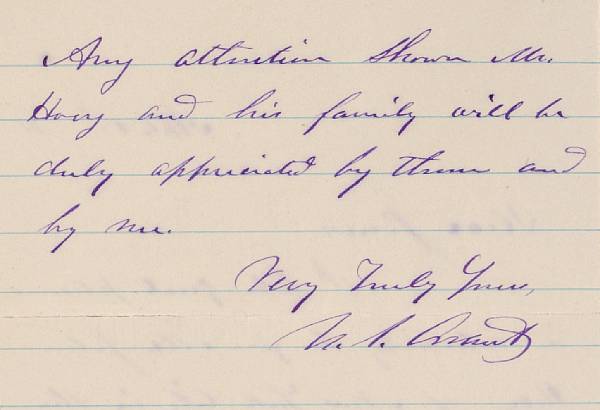 Any attention shown Mr.
Hoey and his family will be
duly appreciated by them and
by me.
Very Truly Yours,
U. S. Grant